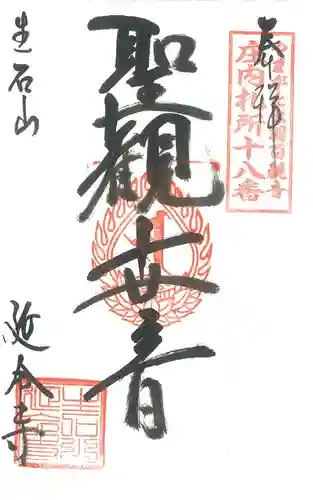 奉拝
庄内札所十八番
聖観世音
生石山
延命寺